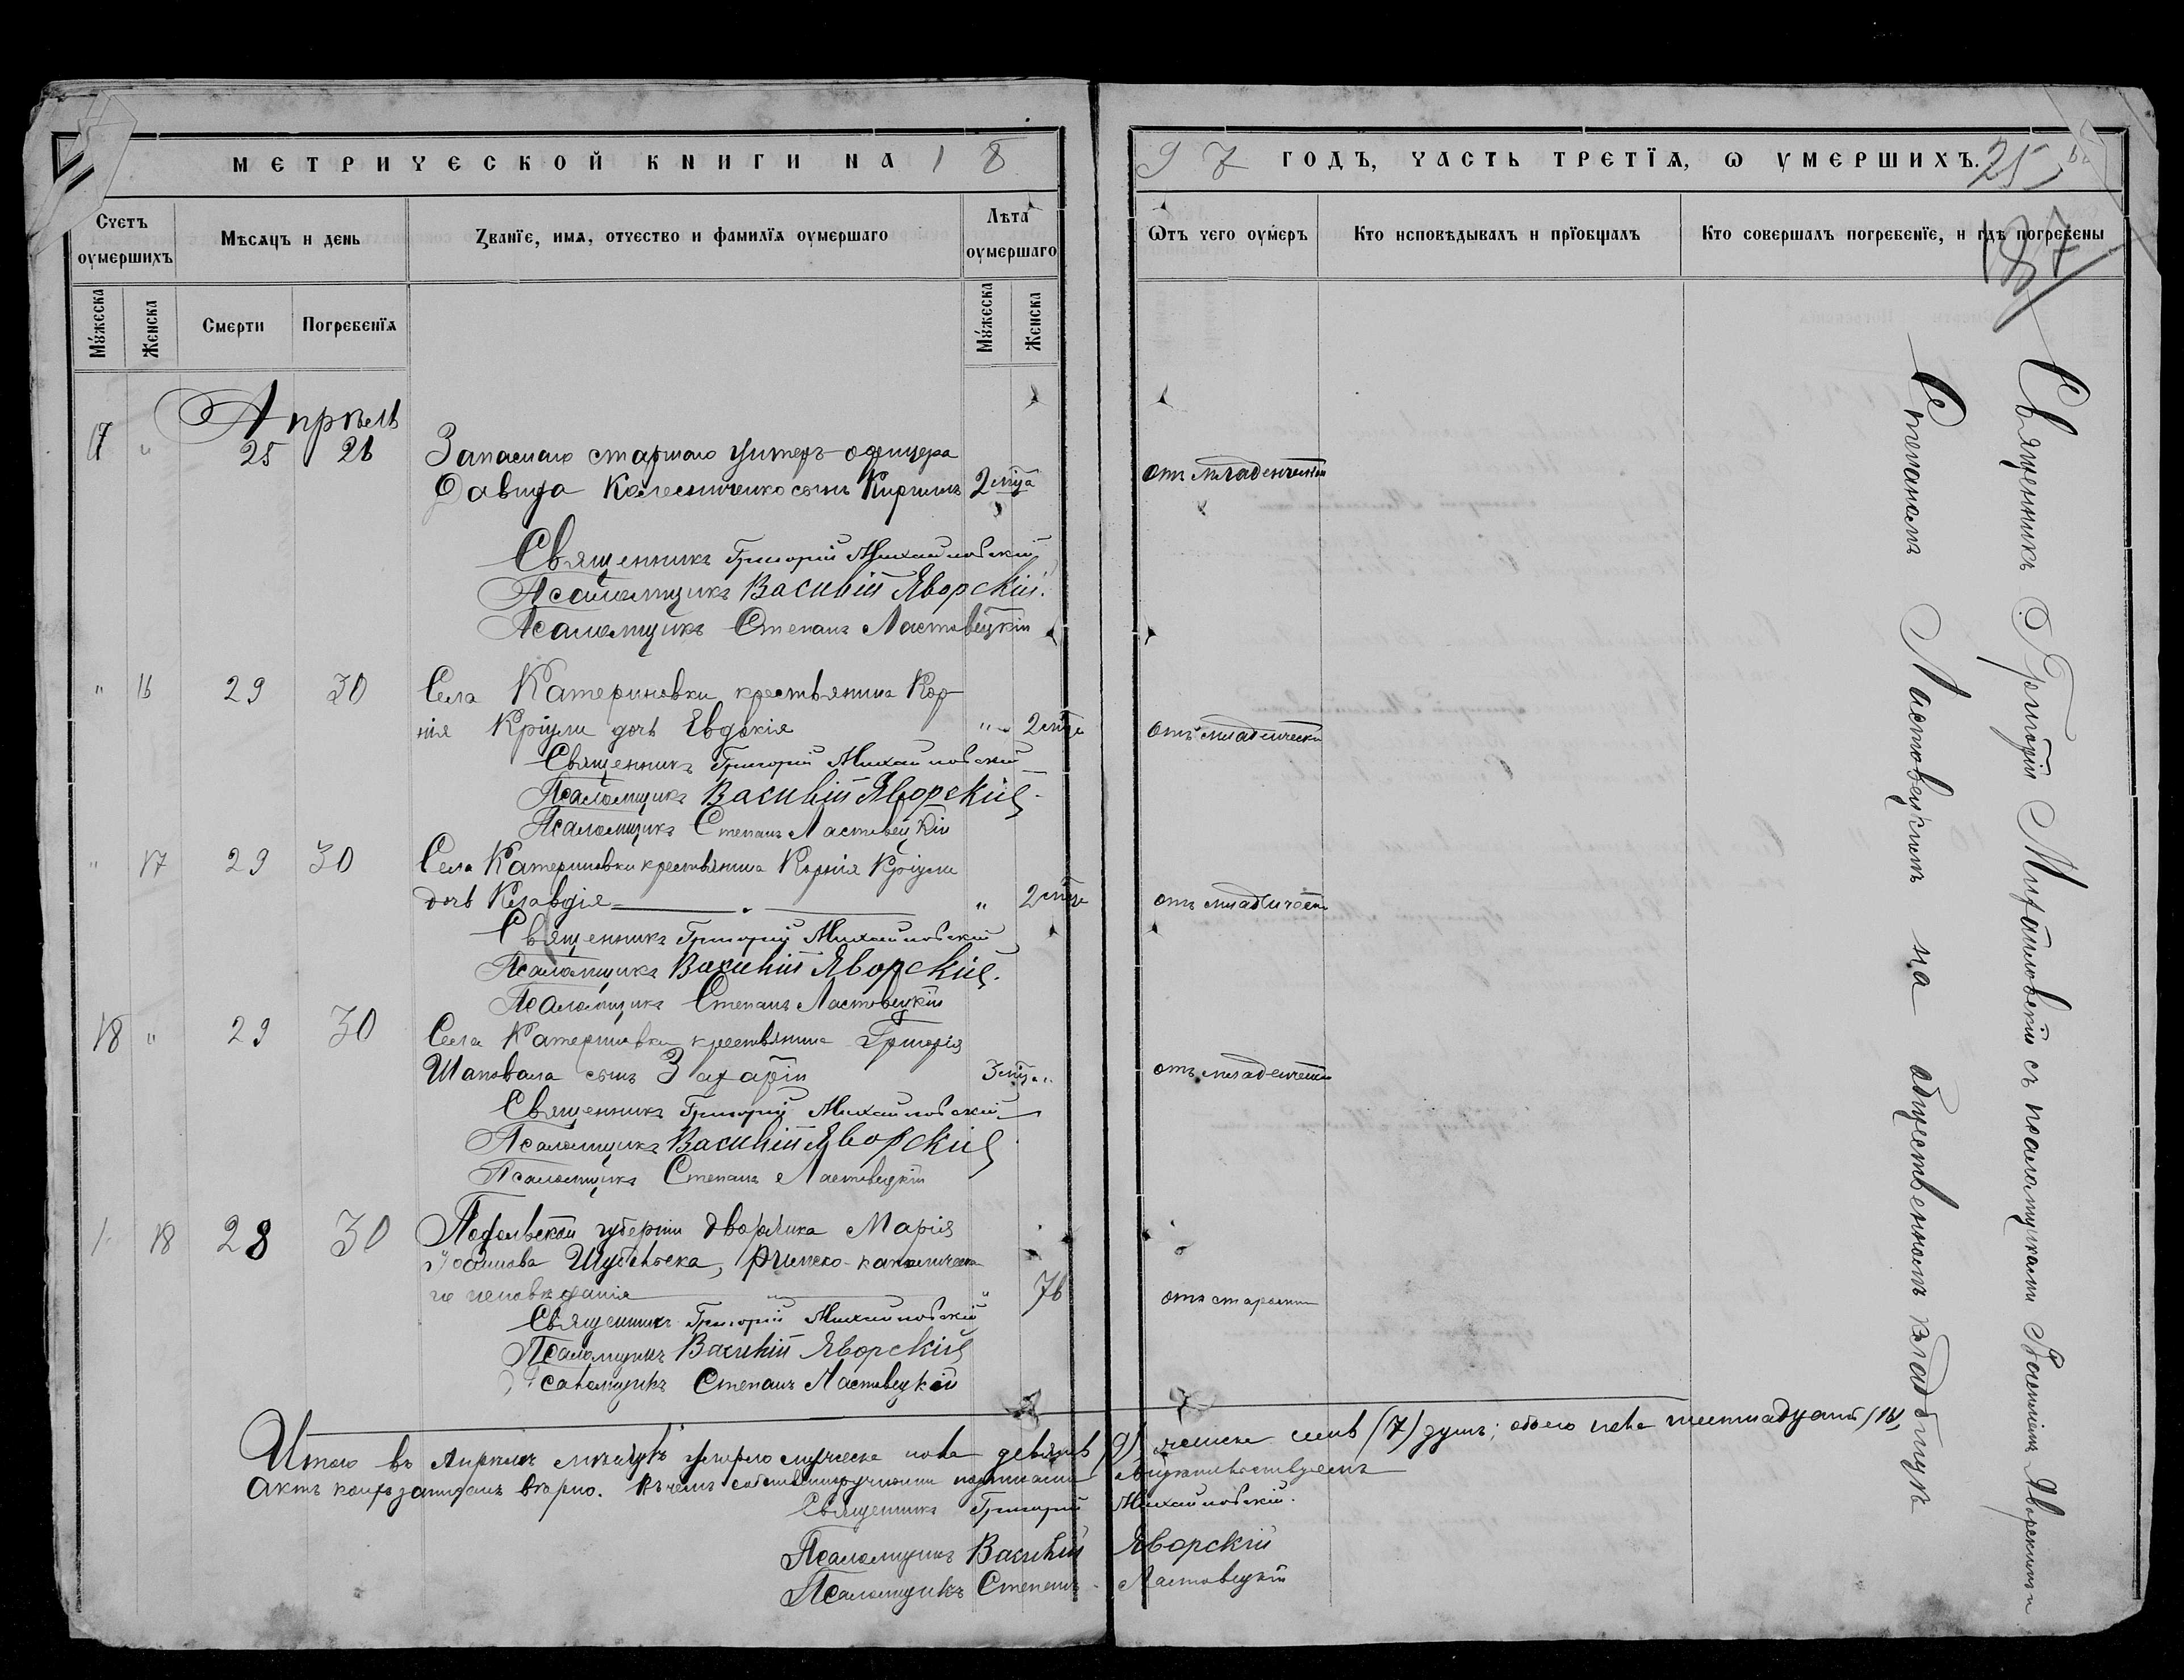 МЕТРИЧЕСКОЙ КНИГИ НА 18
97 ГОДЪ, ЧАСТЬ ТРЕТЇѦ, Ѡ УМЕРШИХЪ. 25
Счетъ оумершихъ
Мѣсяцъ и день
Званїе, имя, отчество и фамилїя оумершаго
Лѣта оумершаго
Ѿтъ чего оумеръ
Кто исповѣдывалъ и прїобщалъ
Кто совершалъ погребенїе, и гдѣ погребены
Мужеска
Женска
Смерти
Погребенїя
Мужеска
Женска
Апрѣль
17 " 25 26 Запаснаго старшаго унтеръ-офицера
Давида Колесниченко сынъ Кириллъ 2 мца отъ младенческой
Священникъ Григорій Михайловскій
Псаломщикъ Василій Яворскій.
Псаломщикъ Степанъ Ластовецкій
" 16 29 30 Села Катериновки крестьянина Кор-
нія Кріули дочь Евдокія " 2 мца отъ младенческой
Священникъ Григорій Михайловскій
Псаломщикъ Василій Яворскій
Псаломщикъ Степанъ Ластовецкій
" 17 29 30 Села Катериновки крестьянина Корнія Кріули
дочь Клавдія " 2 мца отъ младенческой
Священникъ Григорій Михайловскій
Псаломщикъ Василій Яворскій.
Псаломщикъ Степанъ Ластовецкій
18 " 29 30 Села Катериновки крестьянина Григорія
Шаповала сынъ Захарій 3 мца " отъ младенческой
Священникъ Григорій Михайловскій
Псаломщикъ Василій Яворскій
Псаломщикъ Степанъ Ластовецкій
18 28 30 Подольской губерніи дворянка Марія
римско-католическа-
го исповѣданія " 76 отъ старости
Священникъ Григорій Михайловскій
Псаломщикъ Василій Яворскій
Псаломщикъ Степанъ Ластовецкій
Итого въ Апрѣлѣ мѣсяцѣ умерло мужеска пола девять (9) женска семь (7) душъ; обоего пола шестнадцать (16)
Актъ записанъ вѣрно. Въ чемъ собственноручными подписями
Священникъ Григорій Михайловскій.
Псаломщикъ Василій Яворскій
Псаломщикъ Степанъ Ластовецкій
Священникъ Григорій Михайловскій съ псаломщиками Василіемъ Яворскимъ и
Степаномъ Ластовецкимъ на общественномъ кладбищѣ